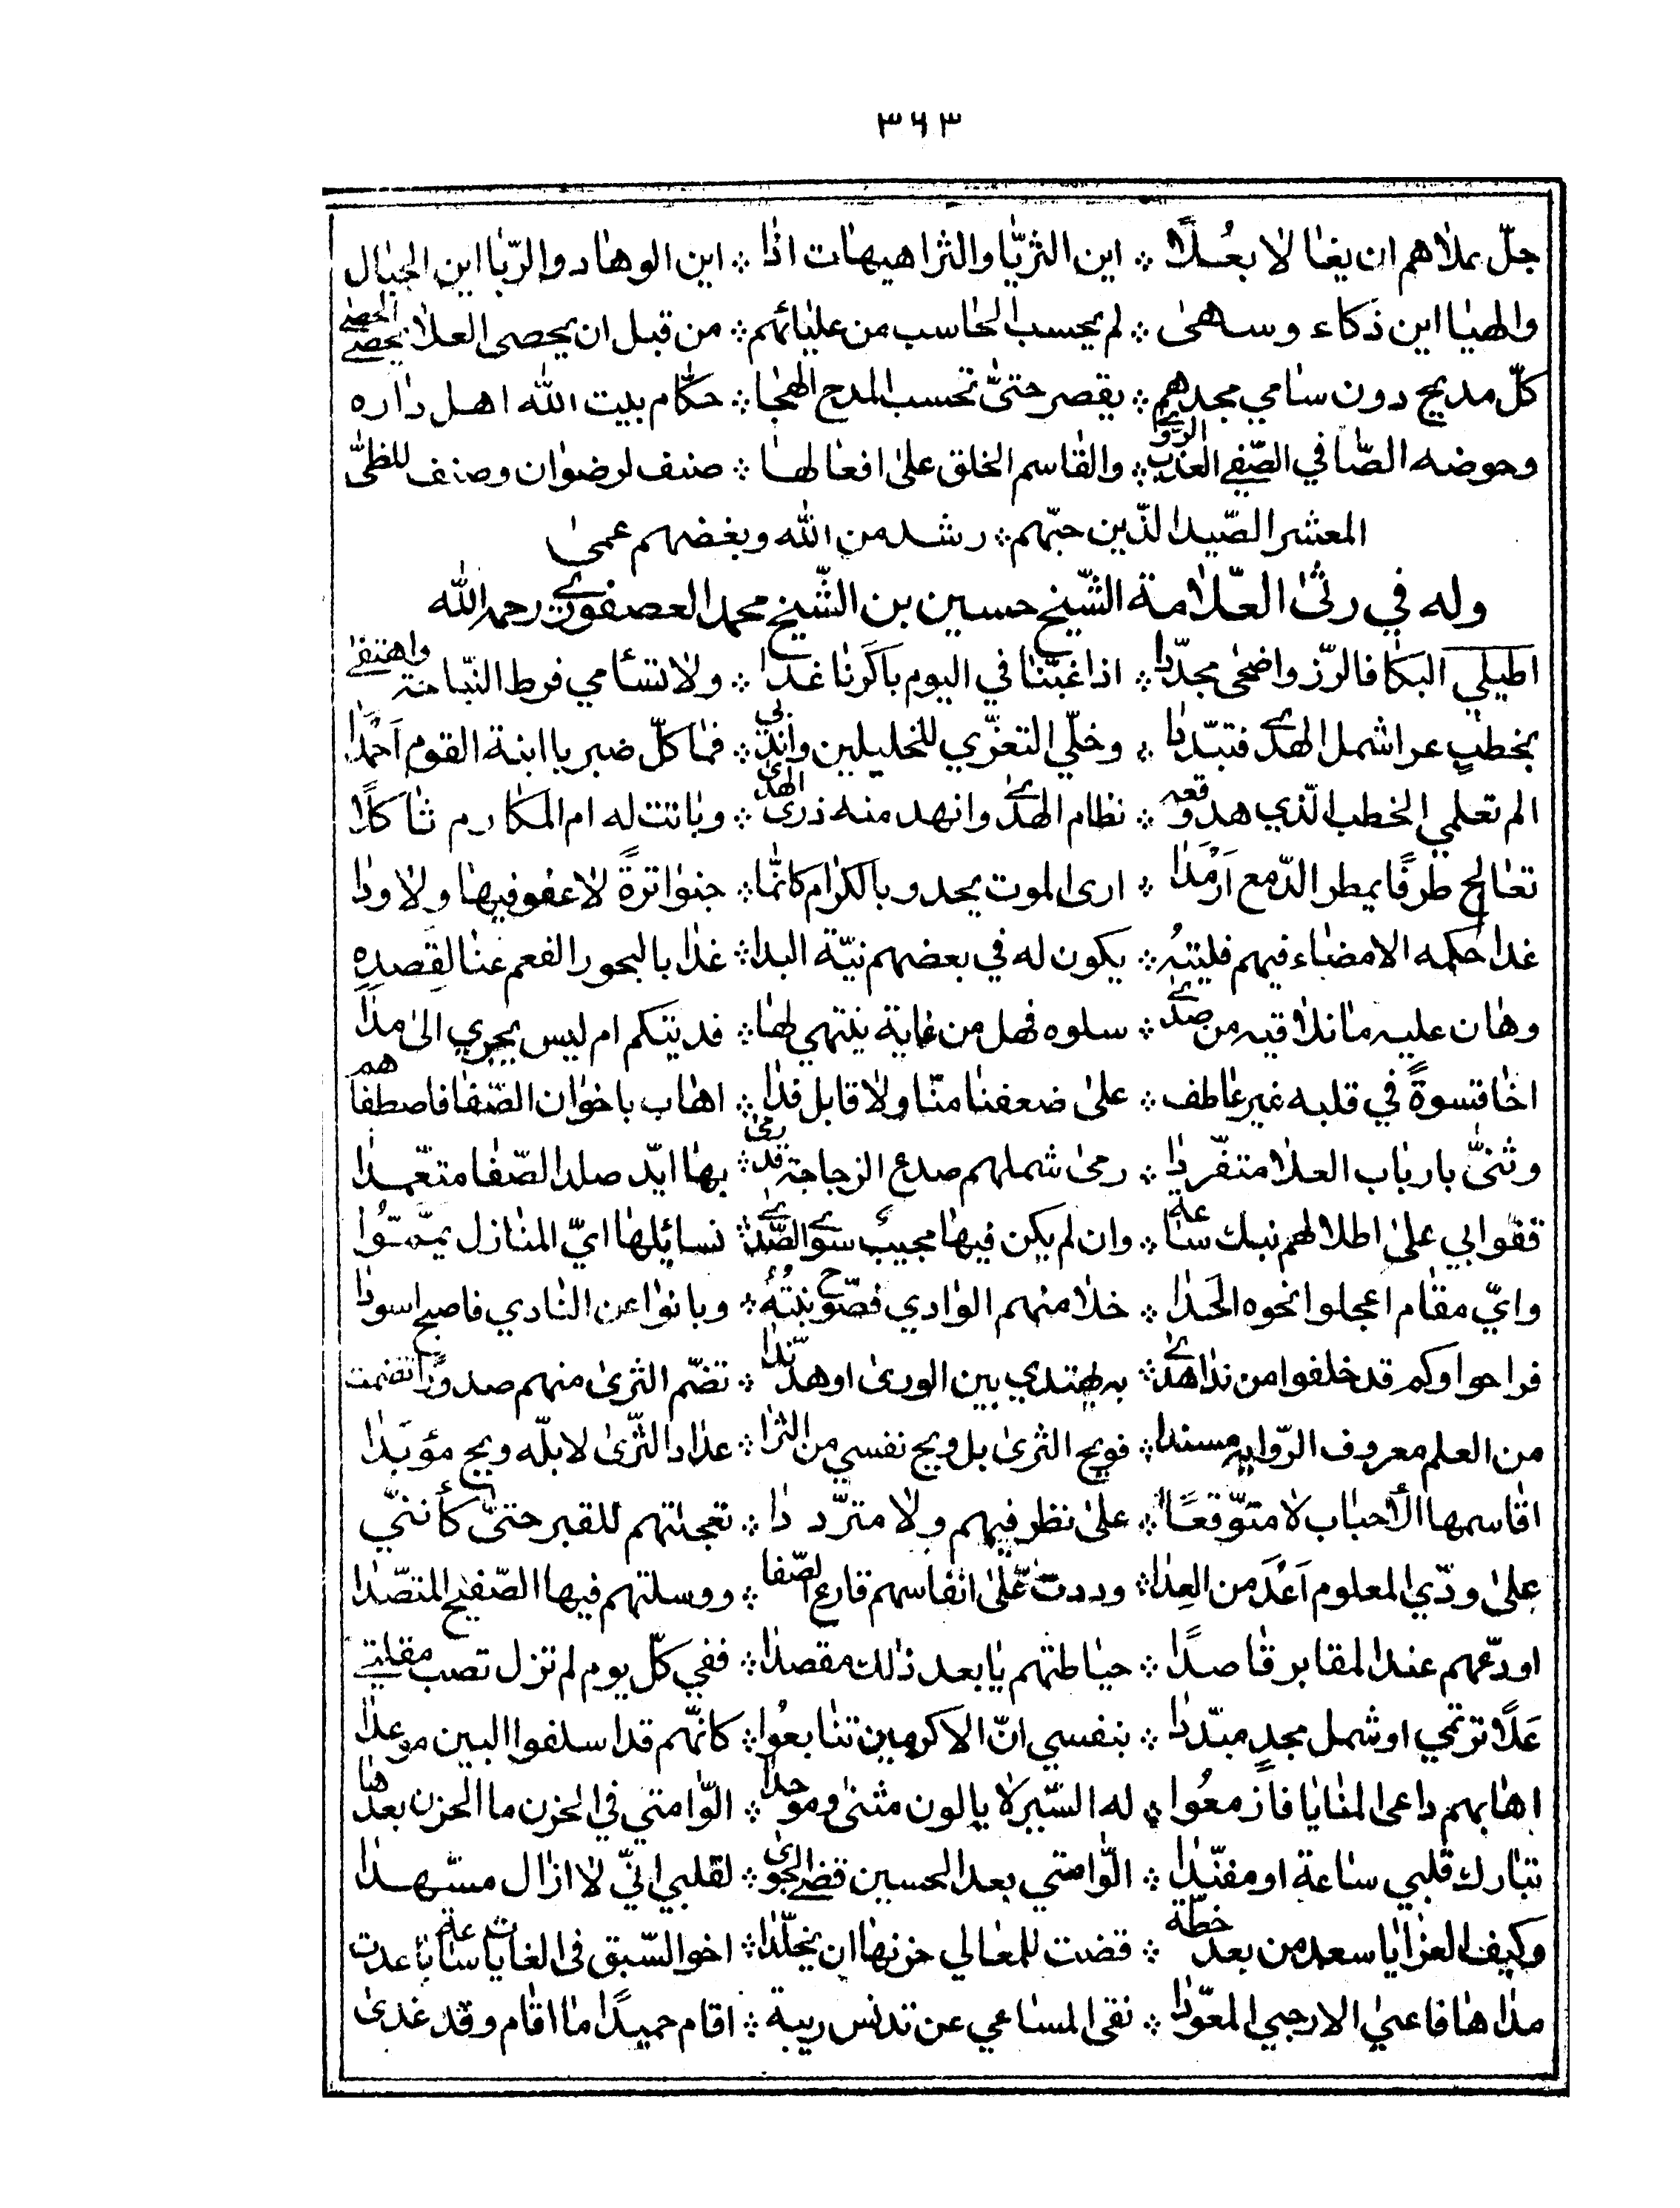 ٣٦٣
جلّ بملاهم ان يغا لا بعُلاً ۞ اين الثريّا والثرا هيهات اذا ۞ اين الوهاد والرّبا اين الجبال
والهيا اين ذكاء وسهىٰ ۞ لم يحسب الحاسب من عليائهم ۞ من قبل ان يحصى العلا يحصے الحصے
كلّ مديح دون سامي مجدهم ۞ يقصر حتىّ تحسب المدح الهجا ۞ حكّام بيت الله اهل داره
وحوضه الصّافي الصّفے العذب الروے ۞ والقاسم الخلق علىٰ افعالها ۞ صنف لرضوان وصنف للظىّ
المعشر الصّيد الذّين حبّهم ۞ رشد من الله وبغضهم عمىٰ
وله في رثىٰ العلّامة الشّيخ حسين بن الشّيخ محمد العصفورے رحمه الله
اطيلي البكا فالرّزء اضحىٰ مجدّدا ۞ اذا غبّنا في اليوم باكرنا غدا ۞ ولا تسأمي فرط النّياحة واهتفے
بخطبٍ عرا شمل الهدے فتبدّدا ۞ وخلّي التعزّي للخليلين واندبي ۞ فما كلّ صبر يا ابنة القوم احمدا
الم تعلمي الخطب الّذي هد وقعه ۞ نظام الهدے وانهد منه ذرى الهدىٰ ۞ وباتت له ام المكارم ثاكلًا
تعالج طرفًا يمطر الدّمع ارمدا ۞ ارى الموت يحدو بالكرام كانّما ۞ جنوا ترةً لا عفو فيها ولا ودا
غدا حكمه الامضاء فيهم فليته ۞ يكون له في بعضهم نيّة البدا ۞ غدا بالبحور الفعم عنا لقصدهِ
وهان عليه ما نلاقيه من صدے ۞ سلوه فهل من غاية ينتهي لها ۞ فديتكم ام ليس يجري الىٰ مدا
اخا قسوةً في قلبه غير عاطف ۞ علىٰ ضعفنا منّا ولا قابل فدا ۞ اهاب باخوان الصّفا فاصطفاهم
وثنىّ بارباب العلا متفرّدا ۞ رمىٰ شملهم صدع الزجاجة قد رمىٰ ۞ بها ايّد صلد الصّفا متعّمدا
قفوا بي علىٰ اطلالهم نبك ساعة ۞ وان لم يكن فيها مجيب سوے الصّدے ۞ نسائلها ايّ المنازل يمّموا
وايّ مقام اعجلوا نحوه الحدا ۞ خلا منهم الوادي فصّوح نبتُهُ ۞ وبانوا عن النادي فاصبح اسودا
فراحوا وكم قد خلفوا من ندا هدے ۞ به يهتدي بين الورىٰ او هدّ ندا ۞ تضّم الثرىٰ منهم صدورًا تضمنت
من العلم معروف الرّوايه مسندا ۞ فويح الثرىٰ بل ويح نفسي من الثرا ۞ عداد الثّرىٰ لا بلّه ويح مؤبدا
اقاسمها الأحباب لا متوّقعًا ۞ علىٰ نظر فيهم ولا متردّدا ۞ تعجلتهم للقبر حتىّ كأننّي
علىٰ ودّي المعلوم اعْدَ من العِدا ۞ وددت علىٰ انفاسهم قارع الصّفا ۞ ووسلتهم فيها الصّفيح المنصّدا
اودّعهم عند المقابر قاصدًا ۞ حياطتهم يا بعد ذلك مقصدا ۞ ففي كلّ يوم لم تزل نصب مقلتے
عَلًا ترتمي او شمل مجدٍ مبّددا ۞ بنفسي انّ الاكرمين تتابعُوا ۞ كانّهم قد اسلفوا البين موعدا
اهابهم داعى المنايا فازمعُوا ۞ له السّير لا يالون مثنىٰ وموحدا ۞ الّوامتي في الحزن ما الحزن بعدها
تبارك قلبي ساعة او مفنّدا ۞ الّوامتي بعد الحسين قضے الجوىٰ ۞ لقلبي انّي لا ازال مسّهدا
وكيف العزا يا سعد من بعد خطّة ۞ قضت للمعالي حزنها ان يخلّدا ۞ اخو السّبق في الغايات ساعة باعدت
مداها فاعيىٰ الارجي المعوّدا ۞ نقى المساعي عن تدنس ريبة ۞ اقام حميدًا ما اقام وقد غدىٰ